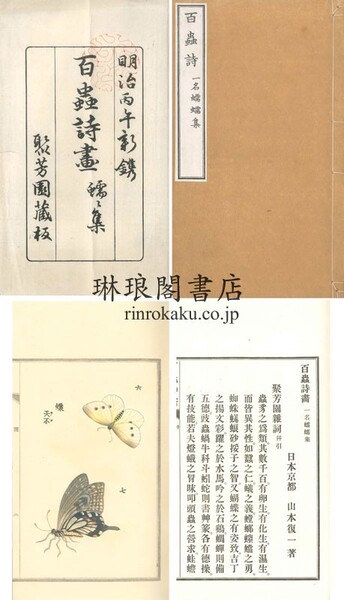 明治丙午新鐫
百蟲詩畫 蠕々集
聚芳園藏板
百蟲詩 一名蠕蠕集
琳琅閣書店
rinrokaku.co.jp
六
蝶
七
百蟲詩畫 一名蠕蠕集
日本京都 山本復一著
聚芳園雜詞 幷引
蟲豸之爲類其數千百有卵生有化生有濕生
而皆異其性如蠶之仁蟻之義螳螂之勇
蜘蛛砂挼子之智又蝴蝶之有姿致吉丁
之揚文彩躍之於水馬吟之於石鷄蜩蟬則備
五德蟲蝸牛科斗蚓蛇則書艸篆各有德操
有技能若夫燈蛾之冒昧叩頭蟲之營求蛙蟾